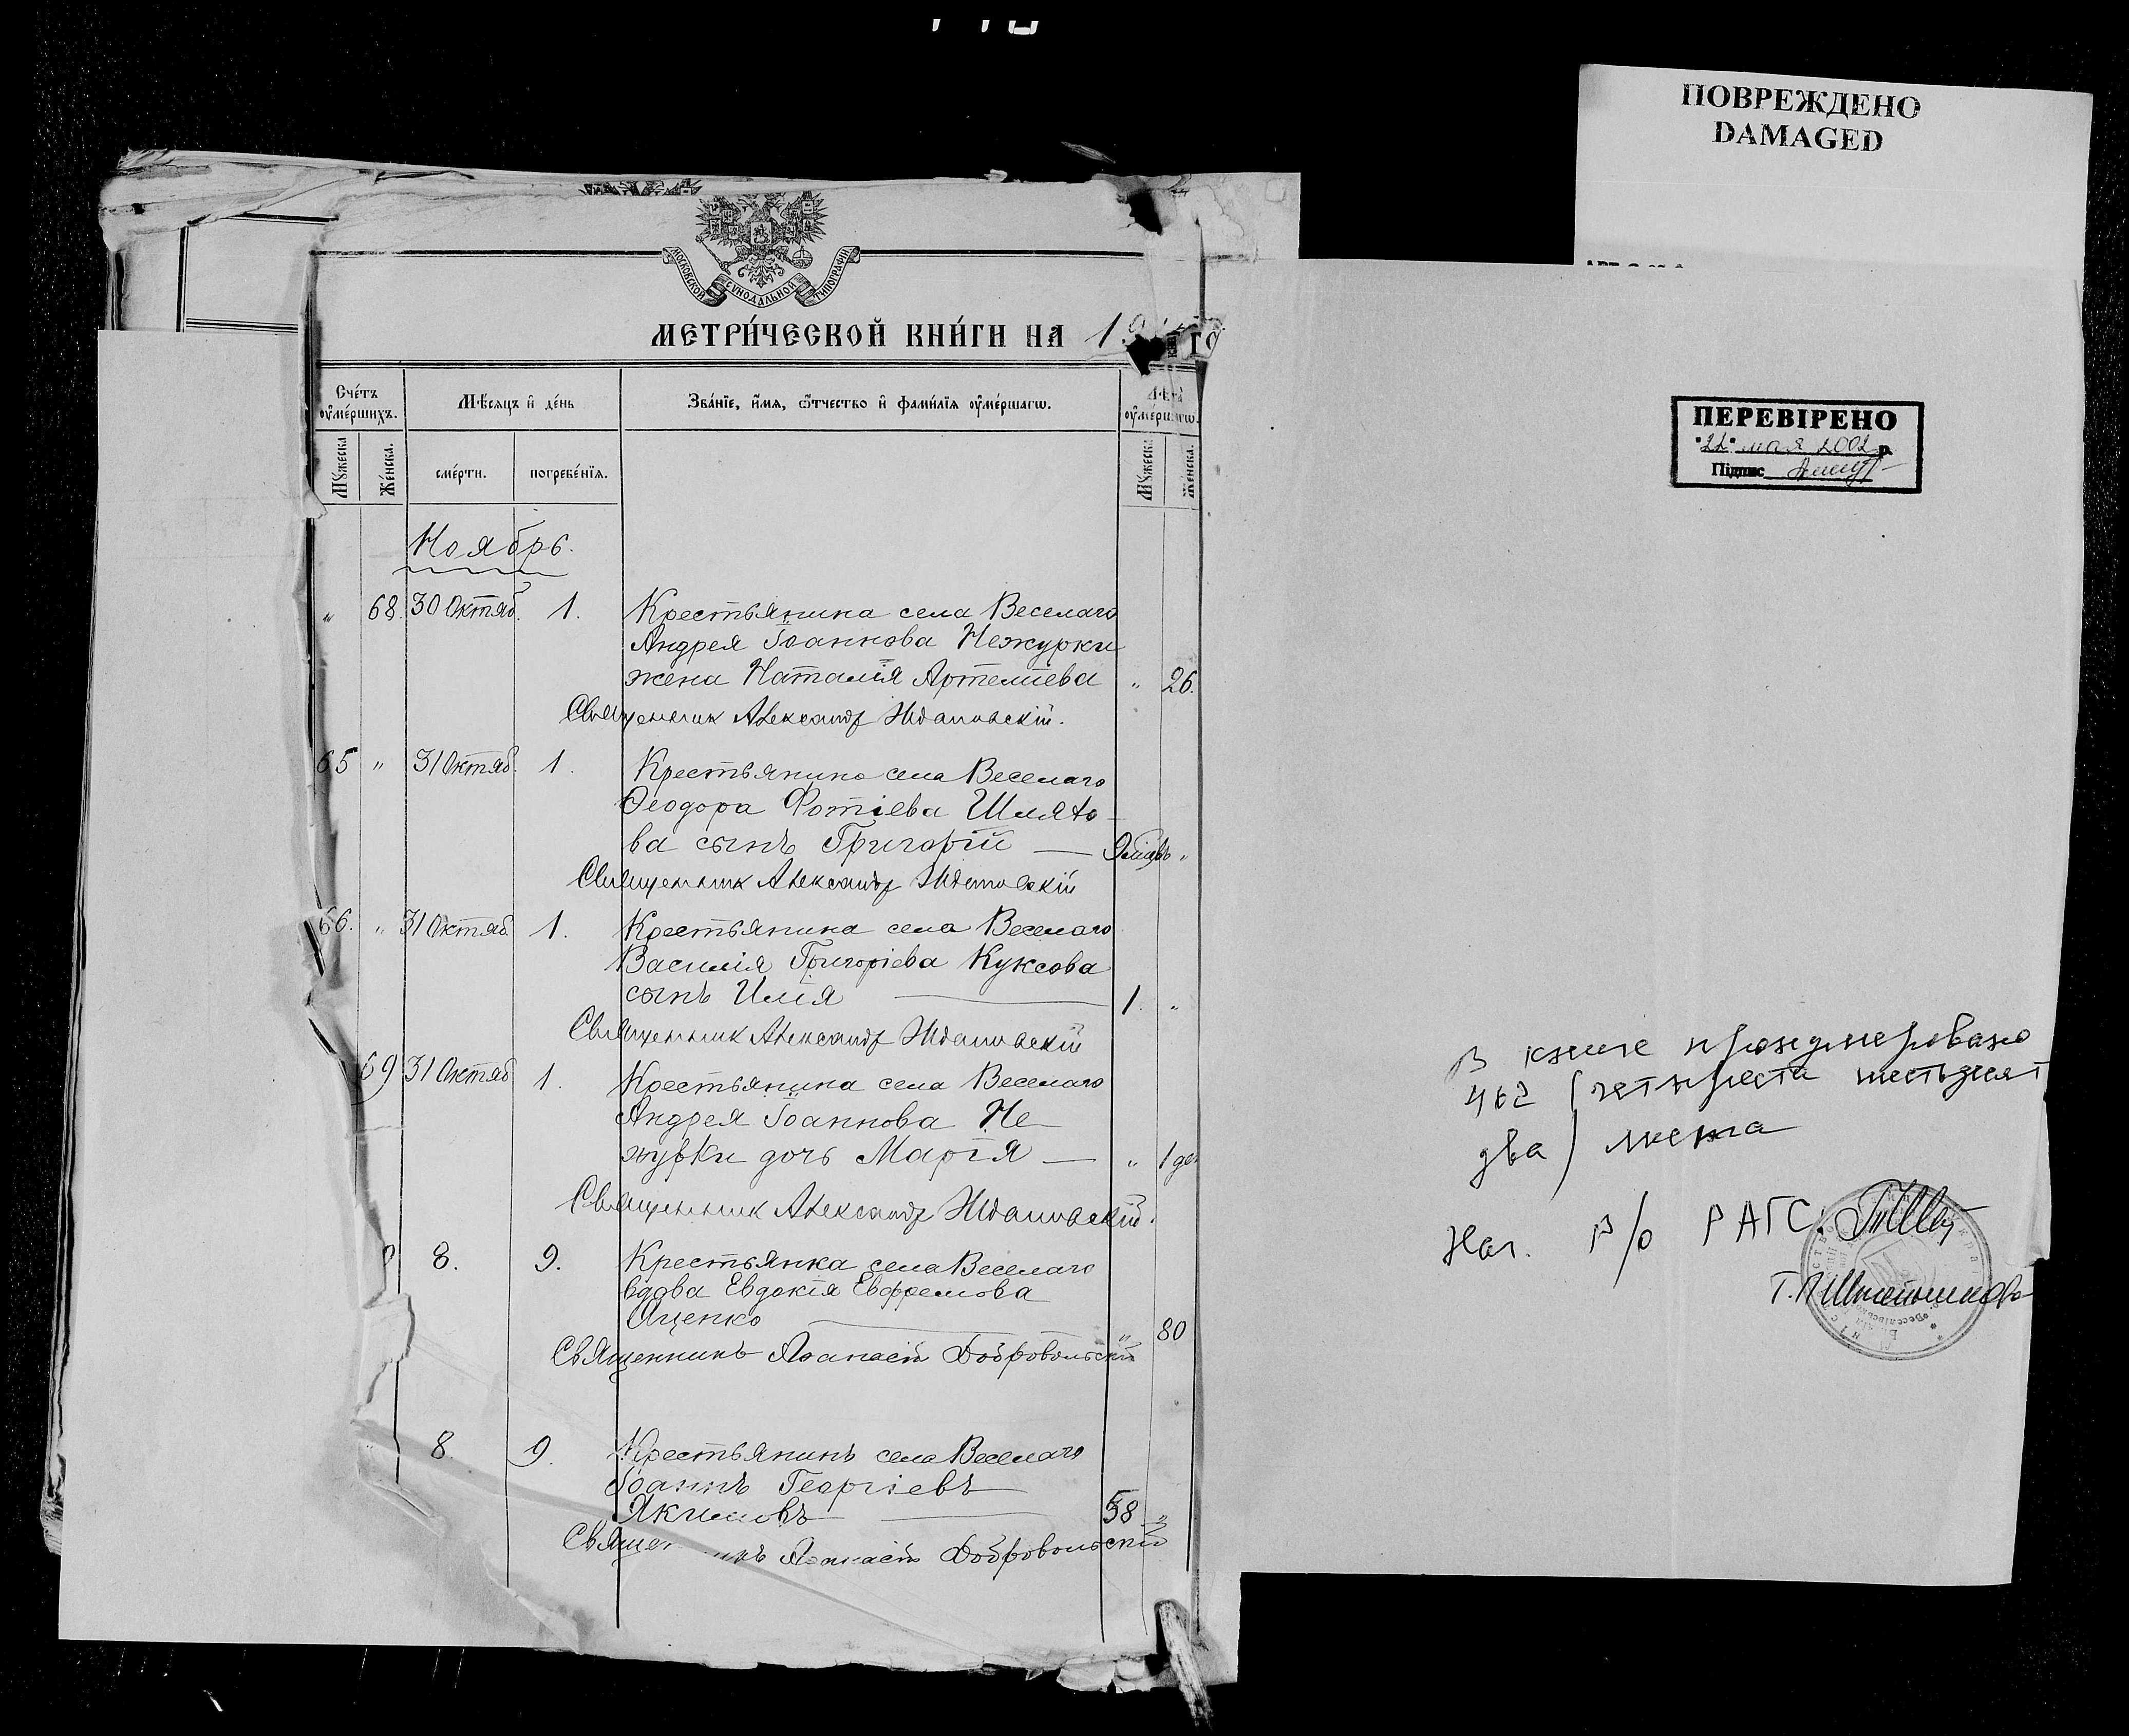 ПОВРЕЖДЕНО
DAMAGED
МОСКОВСКОЙ СѴНОДАЛЬНОЙ ТИПОГРАФІИ.
МЕТРИ́ЧЕСКОЙ КНИ́ГИ НА 19
Сче́тъ оумéршихъ.
Мѣ́сяцъ и де́нь
Зва́нїе, и́мя, ѻ҆́тчество и фами́лїя оуме́ршагѡ.
Лѣ́та оуме́ршагѡ.
Мꙋ́жеска
Же́нска.
сме́рти.
погребе́нїя.
Мꙋ́жеска
Же́нска.
Ноябрь.
" 68. 30 Октяб. 1. Крестьянина села Веселаго
Андрея Іоаннова Нежурки
жена Наталія Артемiева " 26.
Священник Александр Ждановскій.
65 " 31 Октяб. 1. Крестьянина села Веселаго
Ѳеодора Фотіева Шлято-
ва сынъ Григорій — 9 мѣсцвъ "
Священник Александр Ждановскій
66. " 31 Октяб. 1. Крестьянина села Веселаго
Василія Григоріева Куксова
сынъ Илія — 1. "
Священник Александр Ждановскій
69 31 Октяб 1. Крестьянина села Веселаго
Андрея Іоаннова Не-
журки дочь Марія — " 1 де
Священник Александр Ждановскій.
8. 9. Крестьянка села Веселаго
вдова Евдокія Евфремова
Яценко — " 80
Священникъ Аѳанасій Добровольскій
8. 9. Крестьянинъ села Веселаго
Іоаннъ Георгіевъ
Якимовъ — 58 "
Священникъ Аѳанасій Добровольскій
ПЕРЕВІРЕНО
"22" мая 2002 р.
Підпис
В книге пронумеровано
462 (четыреста шестьдесят
два) листа
Нач. р/о РАГС.